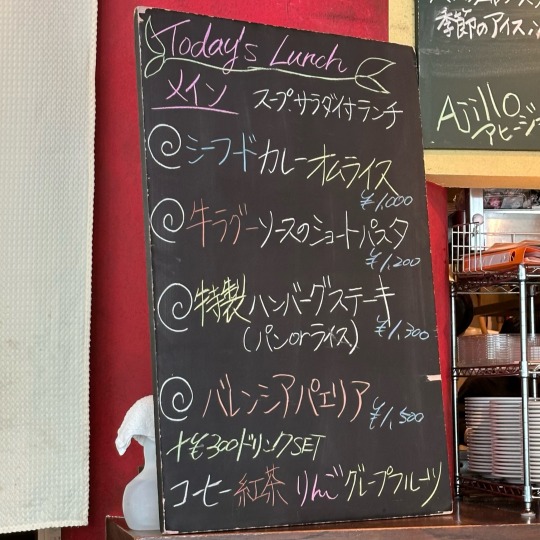 Today's Lunch
メイン
スープ.サラダ付ランチ
シーフードカレーオムライス
¥1,000
牛ラグーソースのショートパスタ
¥1,200
特製ハンバーグステーキ
(パンorライス)
¥1,300
バレンシアパエリア
¥1,500
+¥300ドリンクSET
コーヒー 紅茶 りんご グレープフルーツ
季節のアイス
Ajillo
アヒージョ